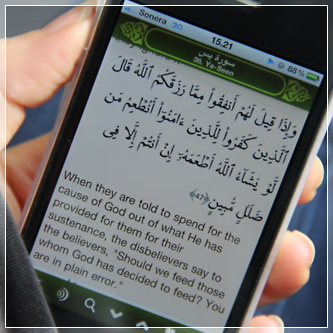 Sonera 3G 15.21 88%
سورة يس
36. Ya-Seen
وَإِذَا قِيلَ لَهُمْ أَنفِقُوا۟ مِمَّا رَزَقَكُمُ ٱللَّهُ قَالَ
ٱلَّذِينَ كَفَرُوا۟ لِلَّذِينَ ءَامَنُوٓا۟ أَنُطْعِمُ مَن
لَّوْ يَشَآءُ ٱللَّهُ أَطْعَمَهُۥٓ إِنْ أَنتُمْ إِلَّا فِى
ضَلَٰلٍ مُّبِينٍ ﴿٤٧﴾
When they are told to spend for the
cause of God out of what He has
provided for them for their
sustenance, the disbelievers say to
the believers, "Should we feed those
whom God has decided to feed? You
are in plain error."